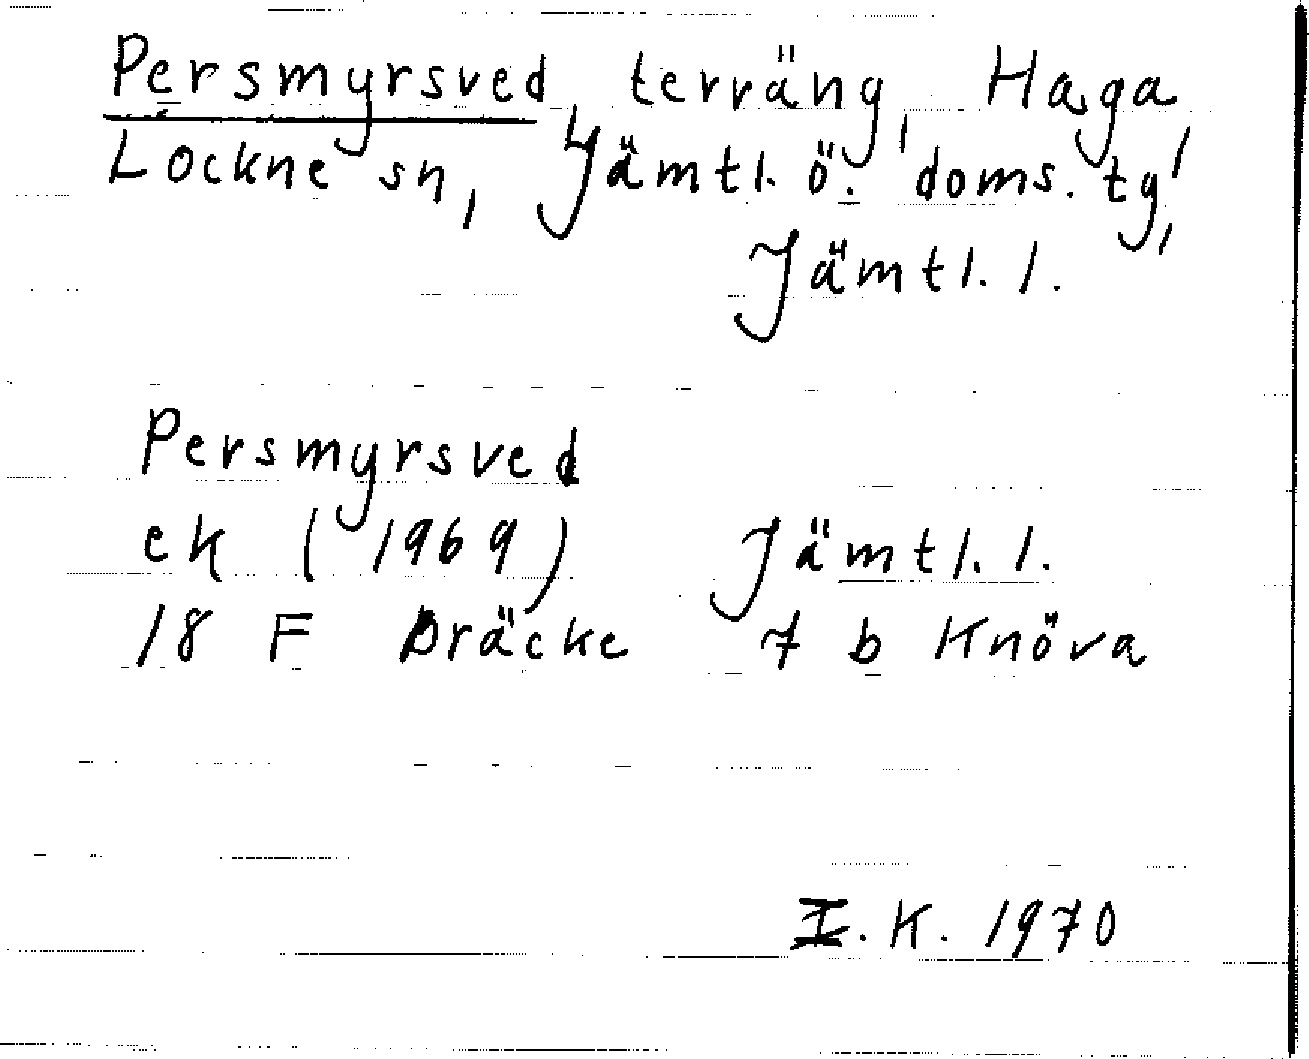 Persmyrsved, terräng, Haga,
Lockne sn, Jämtl. ö. doms. tg,
Jämtl. l.
Persmyrsved
ek (1969) Jämtl. l.
18 F Bräcke 7 b Knöva
I.K. 1970